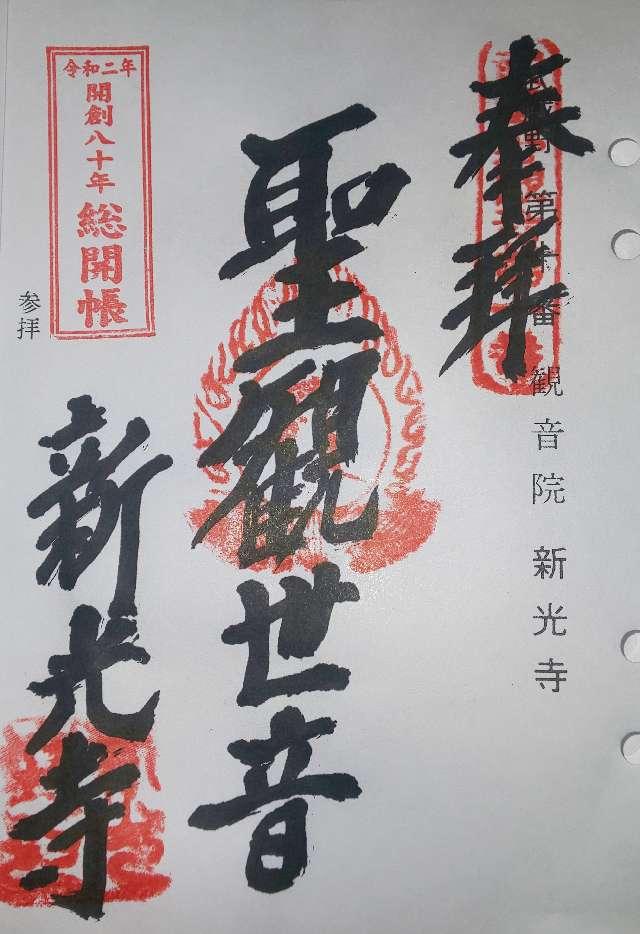 武蔵野 第十番 観音院 新光寺
奉拝
聖観世音
令和二年
開創八十年 総開帳
参拝
新光寺